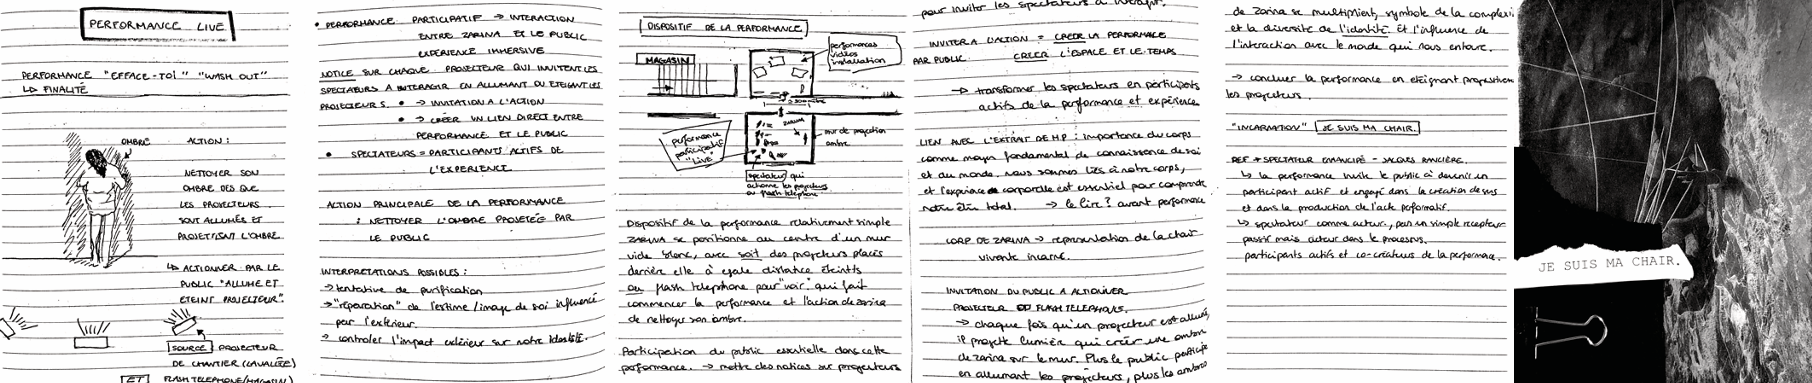 PERFORMANCE LIVE
PERFORMANCE "EFFACE-TOI" "WASH OUT"
↳ FINALITÉ
OMBRE
ACTION :
NETTOYER SON
OMBRE DÈS QUE
LES PROJECTEURS
SONT ALLUMÉS ET
PROJETTENT L'OMBRE.
↳ ACTIONNER PAR LE
PUBLIC "ALLUME ET
ETEINT PROJECTEUR".
SOURCE PROJECTEUR
DE CHANTIER (CAVALÉE)
ET FLASH TELEPHONE (MAGASIN)
• PERFORMANCE PARTICIPATIF → INTERACTION
ENTRE ZARINA ET LE PUBLIC
EXPERIENCE IMMERSIVE
NOTICE SUR CHAQUE PROJECTEUR QUI INVITENT LES
SPECTATEURS A INTERAGIR EN ALLUMANT OU ETEIGNANT LES
PROJECTEURS. • → INVITATION A L'ACTION
• → CRÉER UN LIEN DIRECT ENTRE
PERFORMANCE ET LE PUBLIC
• SPECTATEURS = PARTICIPANTS ACTIFS DE
L'EXPERIENCE
ACTION PRINCIPALE DE LA PERFORMANCE
: NETTOYER L'OMBRE PROJETÉE PAR
LE PUBLIC
INTERPRETATIONS POSSIBLES :
→ tentative de purification
→ "réparation" de l'estime/image de soi influencé
par l'extérieur.
→ controler l'impact extérieur sur notre identité.
DISPOSITIF DE LA PERFORMANCE
performances
vidéos
installation
MAGASIN
ZARINA
performance
participatif
"Live"
mur de projection
ombre
spectateur qui
actionne les projecteurs
ou flash telephone
Dispositif de la performance relativement simple
ZARINA se positionne au centre d'un mur
vide blanc, avec soit des projecteurs placés
derrière elle à egale distance éteints
ou flash telephone pour "voir" qui fait
commencer la performance et l'action de zarina
de nettoyer son ombre.
Participation du public essentielle dans cette
performance. → mettre des notices sur projecteurs
pour inviter les spectateurs à interagir.
INVITER A L'ACTION = CREER LA PERFORMANCE
PAR PUBLIC CREER L'ESPACE ET LE TEMPS
→ transformer les spectateurs en participants
actifs de la performance et expérience
LIEN AVEC L'EXTRAIT DE M.P : importance du corps
comme moyen fondamental de connaissance de soi
et au monde. Nous sommes liés à notre corps,
et l'expérience corporelle est essentiel pour comprendre
notre être total. → le lire ? avant performance
CORP DE ZARINA → representation de la chair
vivante incarné.
INVITATION DU PUBLIC A ACTIONNER
PROJECTEUR OU FLASH TELEPHONE.
→ chaque fois qu'un projecteur est allumé,
il projete lumière qui créer une ombre
de zarina sur le mur. Plus le public participe
en allumant les projecteurs, plus les ombres
de zarina se multiplient, symbole de la complexi
et la diversité de l'identité et l'influence de
l'interaction avec le monde qui nous entoure.
→ conclure la performance en eteignant progressivem
les projecteurs.
"INCARNATION" JE SUIS MA CHAIR.
REF → SPECTATEUR EMANCIPÉ - JACQUES RANCIÈRE.
↳ la performance invite le public à devenir un
participant actif et engagé dans la création de sens
et dans la production de l'acte performatif.
↳ spectateur comme acteur, pas un simple recepteur
passif mais acteur dans le processus.
participants actifs et co-créateurs de la performance.
JE SUIS MA CHAIR.